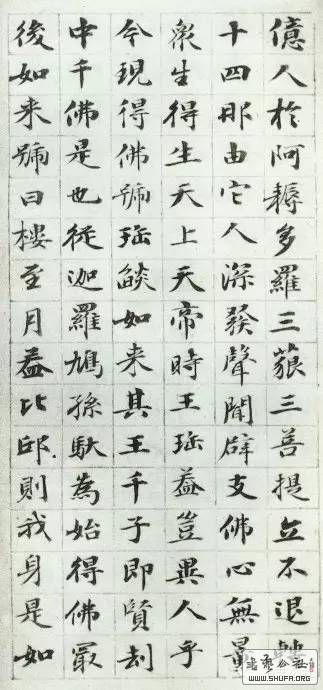 億人於阿耨多羅三藐三菩提立不退
十四那由它人深發聲聞辟支佛心無量
衆生得生天上天帝時王珤葢豈異人乎
今現得佛號珤燄如来其王千子即賢劫
中千佛是也從迦羅鳩孫馱為始得佛最
後如来號曰樓至月葢比邱則我身是如
WWW.SHUFA.ORG